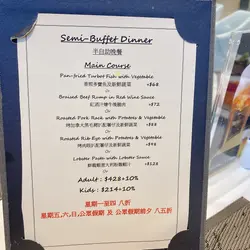 Semi-Buffet Dinner
半自助晚餐
Main Course
Pan-fried Turbot Fish with Vegetable
香煎多寶魚及新鮮蔬菜 +$68
Or
Braised Beef Rump in Red Wine Sauce
紅酒汁 +$72
Or
Roasted Pork Rack with Potatoes & Vegetable
及新鮮蔬菜 +$78
Or
Roasted Rib Eye with Potatoes & Vegetable
烤肉眼 及新鮮蔬菜 +$88
Or
Lobster Pasta with Lobster Sauce
龍蝦 +$123
Adult : $428+10%
Kids : $214+10%
星期一至四 八折
星期五,六,日,公眾假期 及 公眾假期前夕 八五折